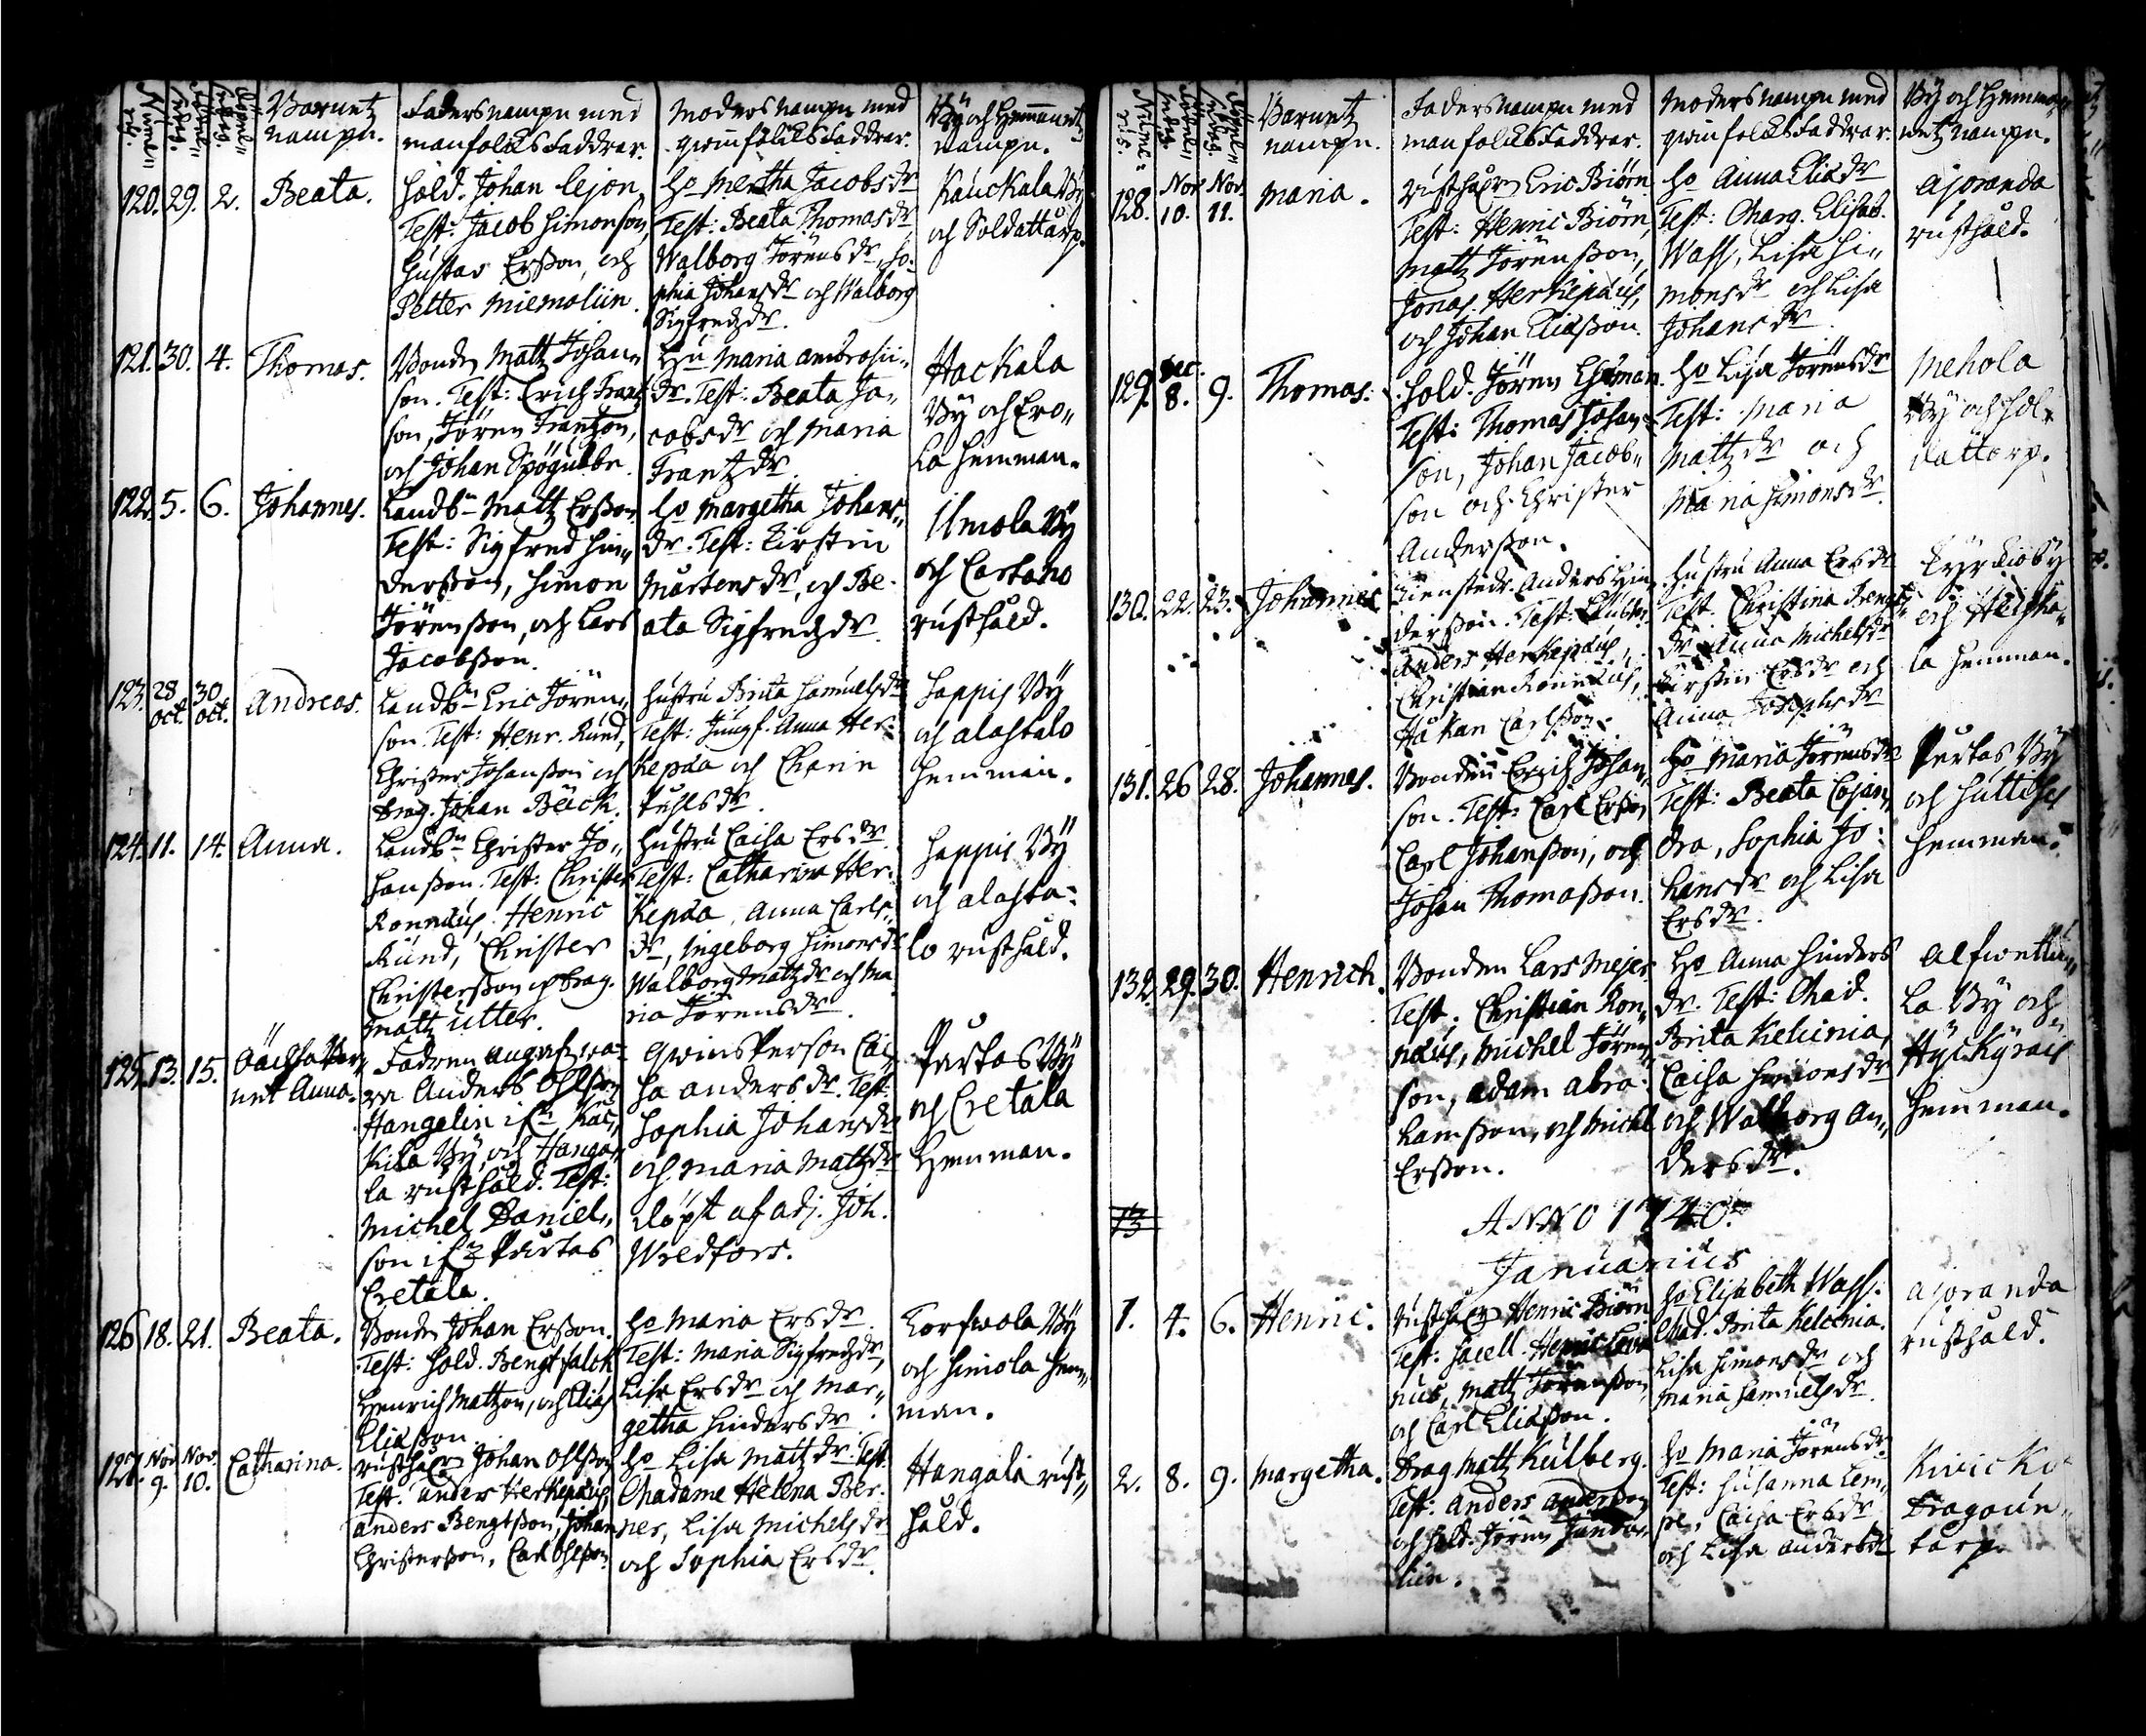 Numerus.
Födelsedag.
Döpelsedag.
Barnetz nampn.
Fadersnampn med manfolcks Faddrar.
Modersnampn med qwinfolcks Faddrar.
By och Hemmanets nampn.
120. 29. 2. Beata.
Sold. Johan Lejon
Test: Jacob Simonson,
Gustav Ersson, och
Petter Miemoliin.
Ho Mertha Jacobs dr
Test: Beata Thomas dr
Walborg Jörens dr, So-
phia Johans dr och Walborg
Sigfredz dr.
Kauckala By
och Soldattårp.
121. 30. 4. Thomas.
Bonden Matz Johan-
son. Test: Erich Frantz
son, Jören Frantzon,
och Johan Spögubbe.
Hu Maria Ambrosii
dr. Test: Beata Ja-
cobs dr och Maria
Frantz dr
Hackala
By och Ero-
la Hemman.
122. 5. 6. Johannes.
Landbn Matz Ersson
Test: Sigfred Hin-
dersson, Simon
Jörensson, och Lars
Jacobsson.
Ho Margetha Johans
dr. Test: Kirstin
Mårtens dr, och Be-
ata Sigfredz dr
Ilmola By
och Cartano
rusthåld.
123. 28 Oct. 30 Oct. Andreas.
Landbn Eric Jören-
son. Test: Henr. Rund,
Christer Johansson och
Drag. Johan Bäck.
Hustru Brita Samuels dr
Test: Jungf. Anna Her-
kepæa och Carin
Puhls dr
Sappis By
och Alastalo
Hemman.
124. 11. 14. Anna.
Landbn Christer Jo-
hansson. Test: Christer
Ronnæus, Henric
Rund, Christer
Christersson och Drag.
Matz Utter.
Hustru Caisa Ers dr
Test: Catharina Her-
kepæa, Anna Carls
dr, Ingeborg Simons dr
Walborg Matz dr och Ma
ria Jörens dr
Sappis By
och Alasta-
lo rusthåld.
125. 13. 15. Oächta Bar-
net Anna.
Fadren angafz wa-
ra Anders Ohlsson
Hangelin ifrn Kau-
kila By, och Hanga-
la rusthåld. Test:
Michel Daniels-
son ifrn Pærtas
Eretala.
Qwinsperson Cai-
sa Anders dr. Test:
Sophia Johans dr
och Maria Matz dr
döpt af adj. Joh.
Widfors.
Pærtas By
och Eretala
Hemman.
126 18. 21. Beata.
Bonden Johan Ersson.
Test: Sold. Bengt Falck
Henrich Matzon, och Elias
Eliasson.
Ho Maria Ers dr
Test: Maria Sigfredz dr,
Lisa Ers dr och Mar-
getha Hinders dr
Korfwola By
och Simola Hem-
man.
127. Nov 9. Nov. 10. Catharina.
Rusthåln Johan Ohlsson
Test. Anders Herkepæus,
Anders Bengtsson, Johan
Christersson, Carl Ohlsson.
Ho Lisa Matz dr Test.
Madame Helena Ber-
ner, Lisa Michels dr
och Sophia Ers dr
Hangala rust-
håld.
Numerus.
Födelsedag.
Döpelsedag.
Barnetz nampn.
Fadersnampn med manfolcksfaddrar.
Modersnampn med qwinfolcksfaddrar.
By och Hemmanetz nampn.
128. Nov 10. Nov. 11. Maria.
Rusthåln Eric Biörn
Test: Henric Biörn,
Matz Jörensson,
Jonas Herkepæus,
och Johan Eliasson.
Ho Anna Elias dr
Test: Marg. Elisab.
Wass, Lisa Si-
mons dr och Lisa
Johans dr
Ajoranda
rusthåld.
129. Dec. 8. 9. Thomas.
Sold. Jören Ekman.
Test: Thomas Johan-
son, Johan Jacob-
son och Christer
Andersson.
Ho Lisa Jörens dr
Test: Maria
Matz dr och
Maria Simons dr
Mehola
By och Sol-
dattorp.
130. 22. 23. Johannes
Tienstedr. Anders Hin
dersson. Test:
Anders Herkepæus,
Christian Ronnæus,
Håkan Carlsson.
Hustru Anna Ers dr
Test. Christina Bengts
dr Anna Michels dr
Kirstin Ers dr och
Anna Josephs dr
och
la Hemman.
131. 26 28. Johannes.
Bonden Erich Johan-
son. Test: Carl Ersson
Carl Johansson, och
Johan Thomasson.
Ho Maria Jörens dr
Test: Beata Cajan-
dra, Sophia Jo-
hans dr och Lisa
Ers dr
Pertas By
och Huttis
Hemman.
132. 29. 30. Henrich.
Bonden Lars Mejer
Test. Christian Ron-
næus, Michel Jören-
son, Adam Abra-
hamsson, och Michel
Ersson.
Ho Anna Hinders
dr. Test: Mad.
Brita Kelcinia,
Caisa Simons dr
och Walborg An-
ders dr.
Alfwettu-
la By och
Hyckyrais
Hemman.
13
ANNO 1740.
Januarius
1. 4. 6. Henric.
Rusthåln Henric Biörn
Test: Sacell. Henric
nus, Matz Jörensson
och Carl Eliasson.
Ho Elisabeth Wass.
Mad. Brita Kelcinia.
Lisa Simons dr och
Maria Samuels dr
Ajoranda
rusthåld.
2. 8. 9. Margetha.
Drag Matz Kulberg.
Test: Anders Andersson
och Sold. Jören Junda-
lin.
Ho Maria Jörens dr
Test: Susanna Lem-
pe, Caisa Ers dr
och Lisa Anders dr
Kvicko
Dragoun-
tarp.